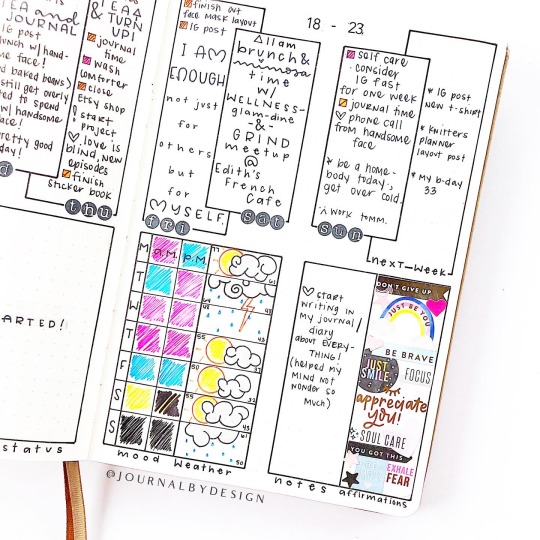 TEA and
JOURNAL
IG post
lunch w/ hand-
some face!
baked beans)
still get overly
ted to spend
w/ handsome
face!
pretty good
day!
TEA
& TURN
UP!
journal
time
wash
comforter
close
Etsy shop
start
project
love is
blind, new
episodes
finish
sticker book
thu
ARTED!
status
finish out
face mask layout
IG post
I AM
ENOUGH
not just
for
others
but
for
MYSELF.
fri
11am
brunch &
mimosa
time
w/
WELLNESS-
glam-dine
-&-
GRIND
meetup
@
Edith's
French
Cafe
sat
18 - 23
self care
consider
IG fast
for one week
journal time
phone call
from handsome
face
* be a home-
body today,
get over cold.
work tomm.
sun
* IG post
new t-shirt
* knitters
planner
layout post
* my b-day
33
next-week
M
T
W
T
F
S
S
a.m.
p.m.
mood weather
start
writing in
my journal/
diary
about EVERY-
THING!
(helped my
mind not
wonder so
much)
notes
DON'T GIVE UP
JUST BE YOU
BE BRAVE
JUST
SMILE
FOCUS
appreciate
you!
SOUL CARE
YOU GOT THIS
EXHALE
FEAR
affirmations
@JOURNALBYDESIGN